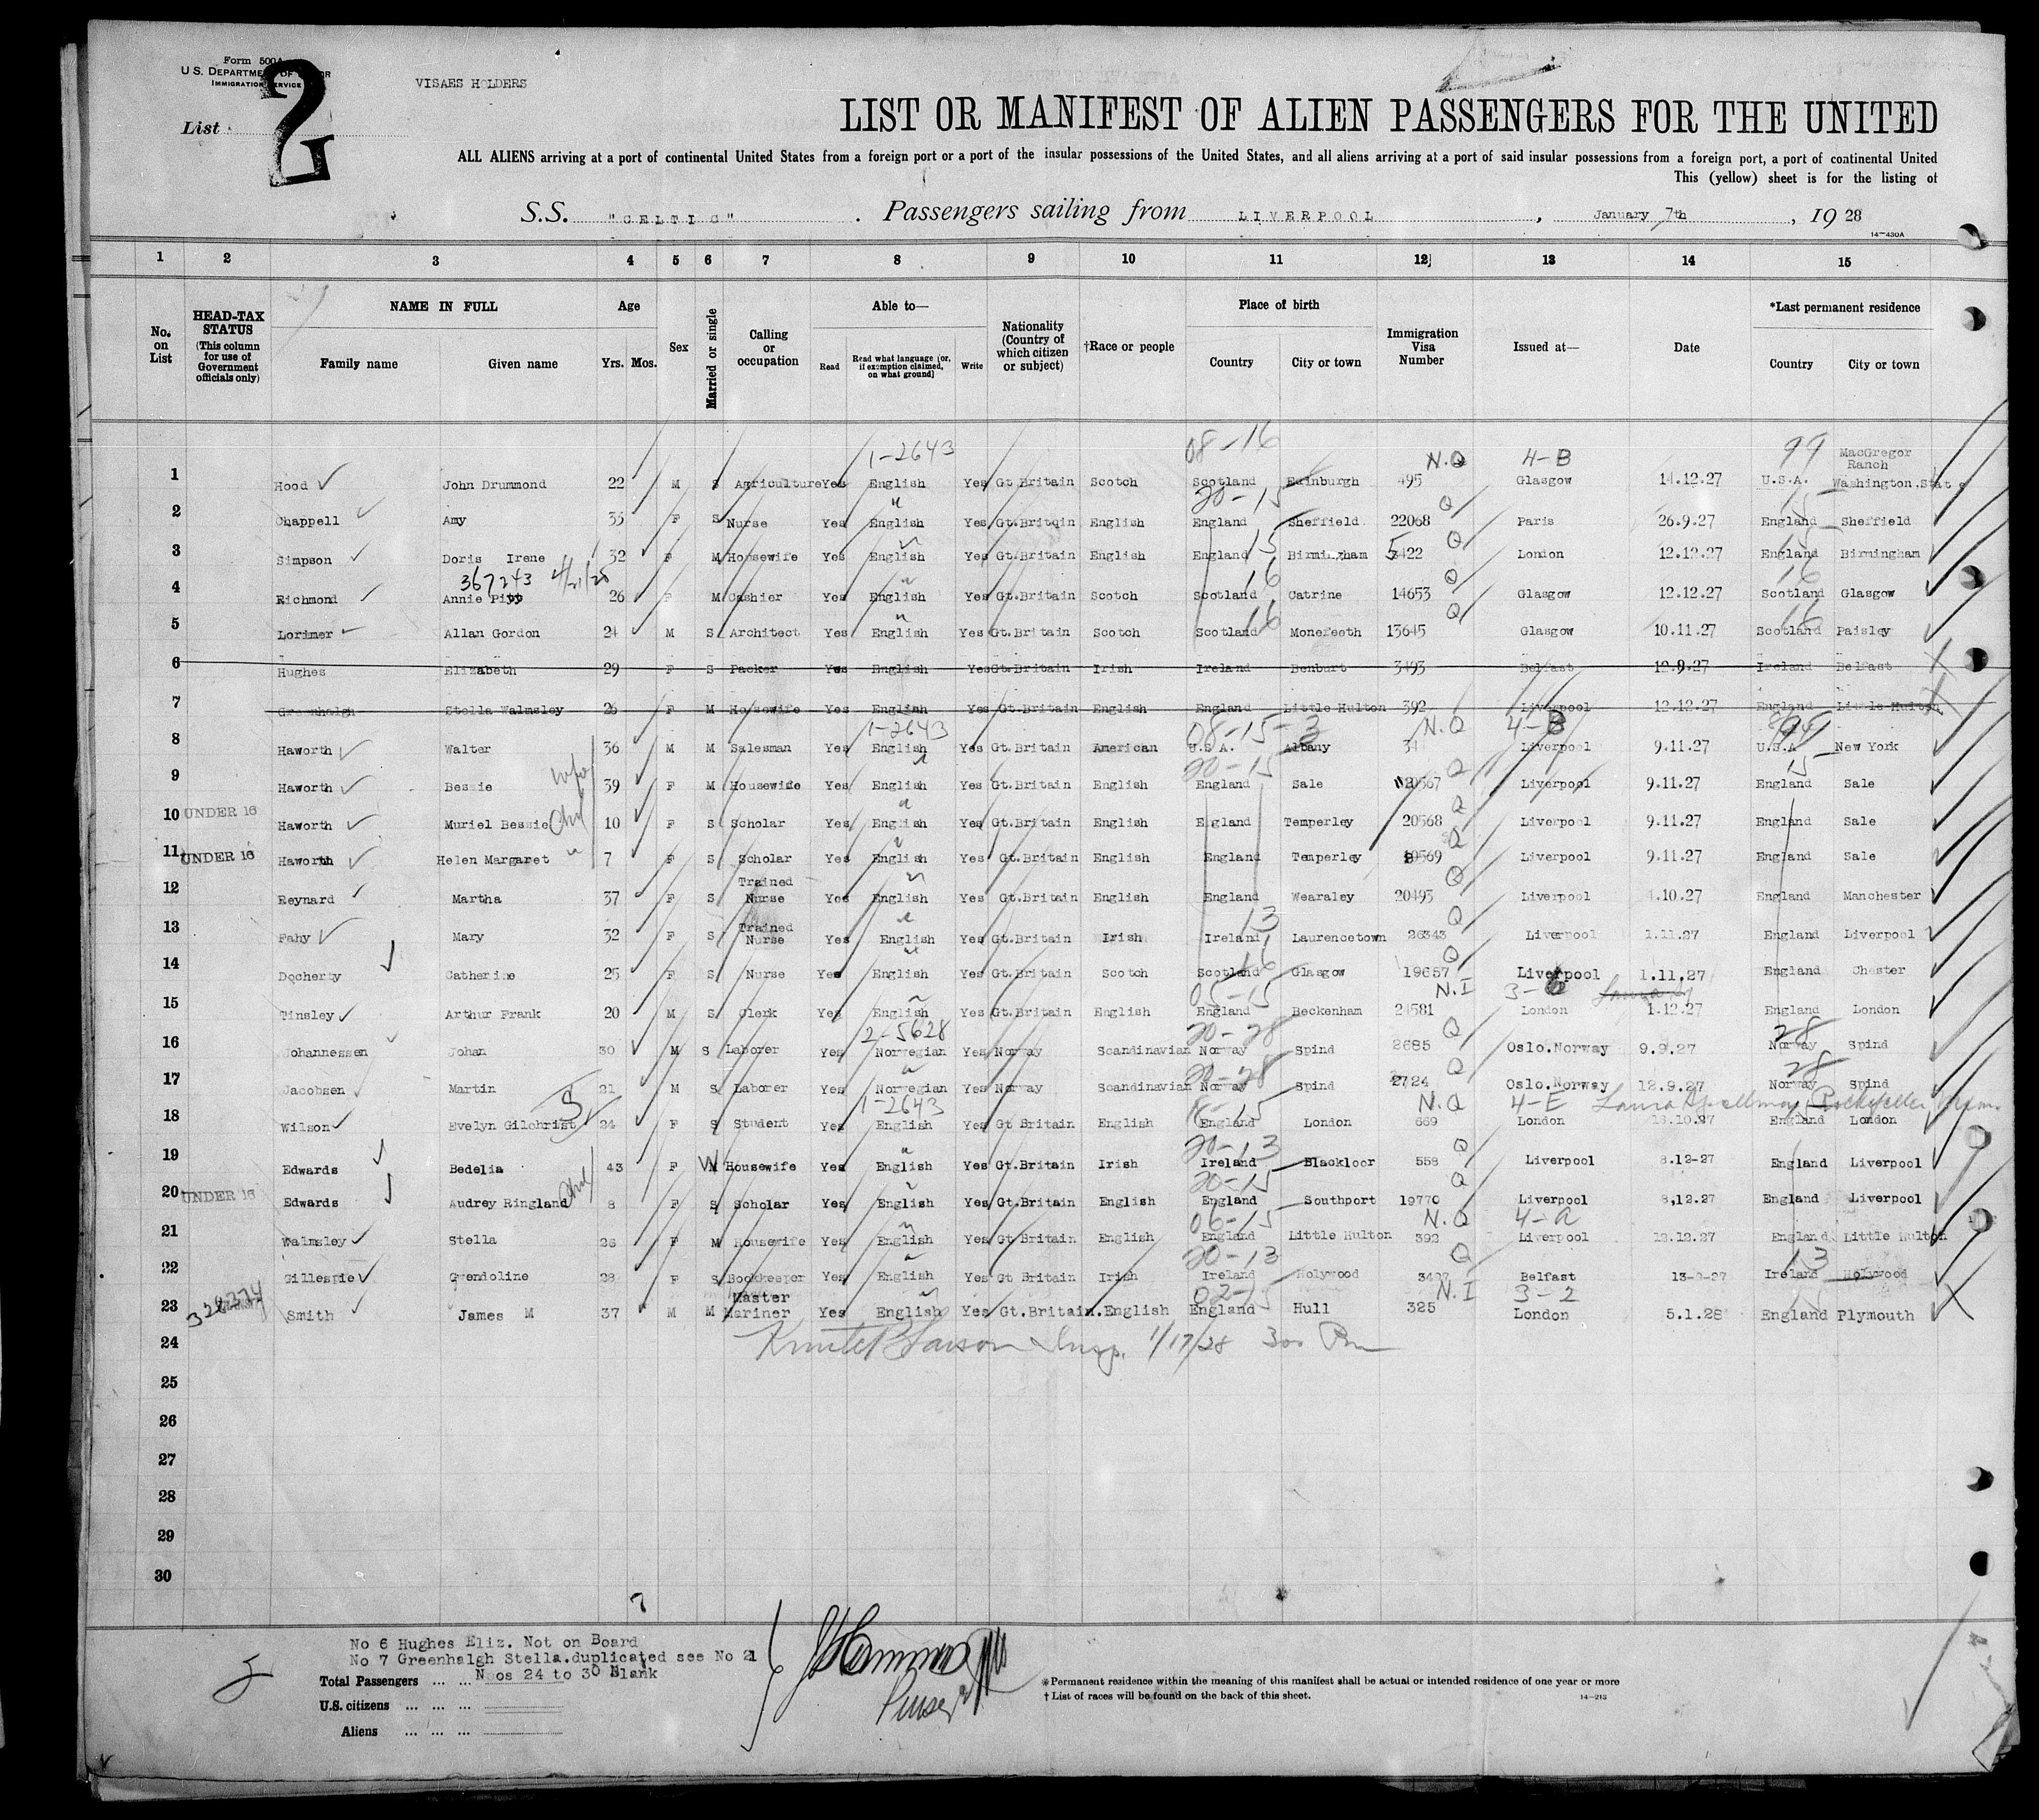 Form 500A
U. S. DEPARTMENT OF LABOR
IMMIGRATION SERVICE
VISAES HOLDERS
List 2
LIST OR MANIFEST OF ALIEN PASSENGERS FOR THE UNITED
ALL ALIENS arriving at a port of continental United States from a foreign port or a port of the insular possessions of the United States, and all aliens arriving at a port of said insular possessions from a foreign port, a port of continental United
This (yellow) sheet is for the listing of
S.S. "CELTIC". Passengers sailing from LIVERPOOL, January 7th, 1928
14—430A
1 2 3 4 5 6 7 8 9 10 11 12 13 14 15
No. on List
HEAD-TAX STATUS (This column for use of Government officials only)
NAME IN FULL
Family name
Given name
Age
Yrs. Mos.
Sex
Married or single
Calling or occupation
Able to—
Read
Read what language (or, if exemption claimed, on what ground)
Write
Nationality (Country of which citizen or subject)
†Race or people
Place of birth
Country
City or town
Immigration Visa Number
Issued at—
Date
*Last permanent residence
Country
City or town
1-2643 08-16 N.Q 4-B 99 MacGregor Ranch
1 Hood John Drummond 22 M S Agriculture Yes English Yes Gt.Britain Scotch Scotland Edinburgh 495 Glasgow 14.12.27 U.S.A. Washington.State
" 20-15 Q 15
2 Chappell Amy 35 F S Nurse Yes English Yes Gt.Britqin English England Sheffield 22068 Paris 26.9.27 England Sheffield
" 15 Q 15
3 Simpson Doris Irene 32 F M Housewife Yes English Yes Gt.Britain English England Birmingham 5422 London 12.12.27 England Birmingham
367243 " 16 Q 16
4 Richmond Annie Pitt 26 F M Cashier Yes English Yes Gt.Britain Scotch Scotland Catrine 14653 Glasgow 12.12.27 Scotland Glasgow
" 16 Q 16
5 Lorimer Allan Gordon 24 M S Architect Yes English Yes Gt.Britain Scotch Scotland Monefeeth 13645 Glasgow 10.11.27 Scotland Paisley
6 Hughes Elizabeth 29 F S Packer Yes English Yes Gt.Britain Irish Ireland Benburt 3493 Belfast 12.9.27 Ireland Belfast
7 Greenhalgh Stella Walmsley 26 F M Housewife Yes English Yes Gt.Britain English England Little Hulton 392 Liverpool 12.12.27 England Little Hulton
1-2643 08-15-3 N.Q 4-B 99
8 Haworth Walter 36 M M Salesman Yes English Yes Gt Britain American U.S A. Albany Liverpool 9.11.27 U.S.A New York
wife " 20-15 Q 15
9 Haworth Bessie 39 F M Housewife Yes English Yes Gt.Britain English England Sale 20567 Liverpool 9.11.27 England Sale
10 UNDER 16 Haworth Muriel Bessie Chd 10 F S Scholar Yes English Yes Gt.Britain English England Temperley 20568 Q Liverpool 9.11.27 England Sale
11 UNDER 16 Haworth Helen Margaret " 7 F S Scholar Yes English Yes Gt.Britain English England Temperley 20569 Q Liverpool 9.11.27 England Sale
12 Reynard Martha 37 F S Trained Nurse Yes English Yes Gt.Britain English England Wearsley 20493 Q Liverpool 4.10.27 England Manchester
" 13 Q
13 Fahy Mary 32 F S Trained Nurse Yes English Yes Gt.Britain Irish Ireland Laurencetown 26343 Liverpool 1.11.27 England Liverpool
" 16 Q
14 Docherty Catherine 25 F S Nurse Yes English Yes Gt.Britain Scotch Scotland Glasgow 19657 Liverpool 1.11.27 England Chester
" 05-15 N.I
15 Tinsley Arthur Frank 20 M S Clerk Yes English Yes Gt.Britain English England Beckenham 24581 London 1.12.27 England London
2-5628 20-28 Q 28
16 Johannessen Johan 30 M S Laborer Yes Norwegian Yes Norway Scandinavian Norway Spind 2685 Oslo.Norway 9.9.27 Norway Spind
" 20-28 Q 28
17 Jacobsen Martin 21 M S Laborer Yes Norwegian Yes Norway Scandinavian Norway Spind 2724 Oslo.Norway 12.9.27 Norway Spind
1-2643 N.Q 4-E Laura Spellman Rockefeller Mem.
18 Wilson Evelyn Gilchrist 24 F S Student Yes English Yes Gt Britain English England London 669 London 13.10.27 England London
" 20-13 Q
19 Edwards Bedelia 43 F W Housewife Yes English Yes Gt.Britain Irish Ireland Blackloor 558 Liverpool 8.12-27 England Liverpool
Chd " 20-15 Q
20 UNDER 16 Edwards Audrey Ringland 8 F S Scholar Yes English Yes Gt.Britain English England Southport 19770 Liverpool 8,12.27 England Liverpool
" 06-15 N.Q 4-a
21 Walmsley Stella 26 F M Housewife Yes English Yes Gt Britain English England Little Hulton 392 Liverpool 12.12.27 England Little Hulton
" 20-13 Q 13
22 Gillespie Gwendoline 28 F S Bookkeeper Yes English Yes Gt Britain Irish Ireland Holywood Belfast Ireland Holywood
" 02-15 N.I 3-2
23 Smith James M 37 M M Master Mariner Yes English Yes Gt.Britain.English England Hull 325 London 5.1.28 England Plymouth
24 Insp. 1/17/28 300 Pm
25
26
27
28
29
30
No 6 Hughes Eliz. Not on Board
No 7 Greenhalgh Stella.duplicated see No 21
Nos 24 to 30 Blank
Total Passengers
U.S. citizens
Aliens
Purser
*Permanent residence within the meaning of this manifest shall be actual or intended residence of one year or more
† List of races will be found on the back of this sheet.
14—213